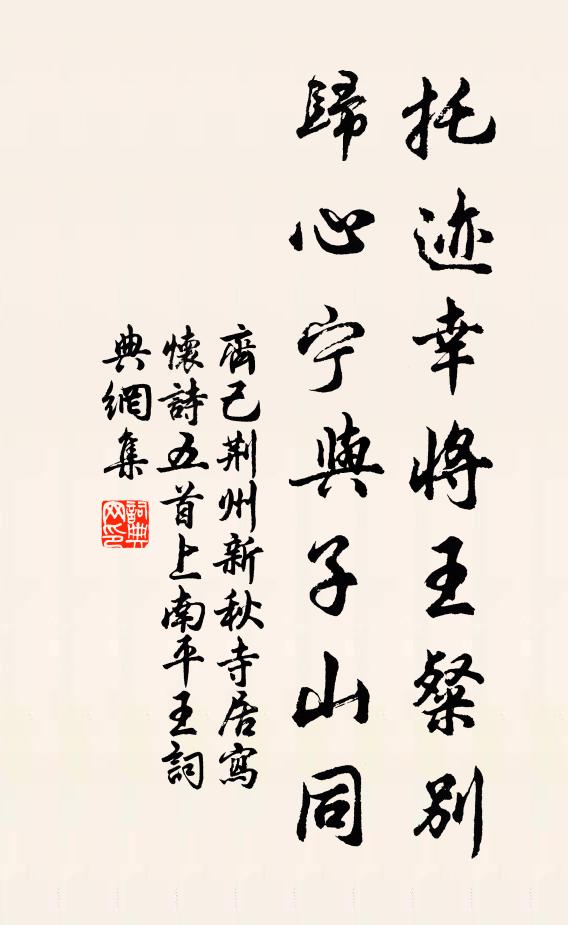 托迹幸將王粲別
歸心宁與子山同
齊己荆州新秋寺居寫
懷詩五首上南平王詞
典網集
詞典网印